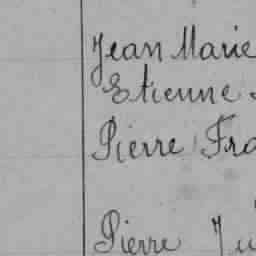 Jean Marie
Etienne
Pierre Fra
Pierre Ju